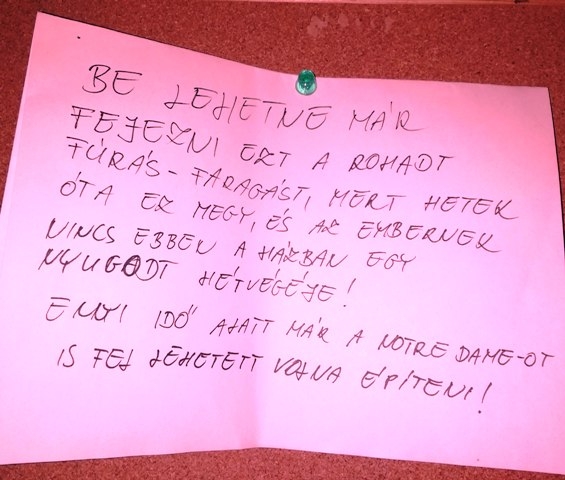 BE LEHETNE MÁR
FEJEZNI EZT A ROHADT
FÚRÁS-FARAGÁST, MERT HETEK
ÓTA EZ MEGY, ÉS AZ EMBERNEK
NINCS EBBEN A HÁZBAN EGY
NYUGODT HÉTVÉGÉJE!
ENNYI IDŐ ALATT MÁR A NOTRE DAME-OT
IS FEL LEHETETT VOLNA ÉPÍTENI!